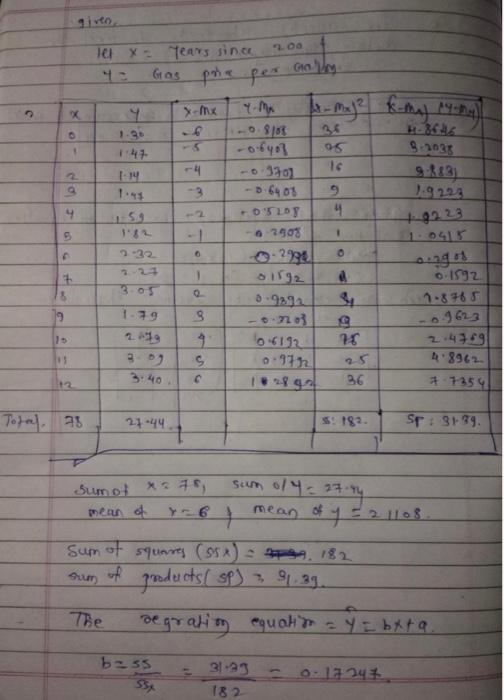 given,
let x = Years since 200
Y = Gas price per Gallon
x Y x-Mx Y-Mx (x-Mx)² (x-Mx)(Y-My)
0 1.30 -6 -0.8108 36 4.8646
1 1.47 -5 -0.6408 25 3.2038
2 1.14 -4 -0.9708 16 3.8831
3 1.47 -3 -0.6408 9 1.9223
4 1.59 -2 -0.5208 4 1.9223
5 1.82 -1 -0.2908 1 1.0415
6 2.32 0 0 0.2908
7 2.27 1 0.1592 0.1592
8 3.05 2 0.9392 1.8785
9 1.79 3 -0.3208 -0.9623
10 2.73 4 0.6192 2.4769
11 3.09 5 0.9792 25 4.8962
12 3.40 6 1.2892 36 7.7354
Total. 78 27.44 S: 182. SP: 31.39.
Sum of x = 78, sum of Y = 27.44
mean of x = 6 & mean of y = 2.1108.
Sum of squares (SSX) = 182
sum of products (SP) = 31.39.
The regration equation = Ŷ = bx+a.
b = SS/SSx = 31.39/182 = 0.17247